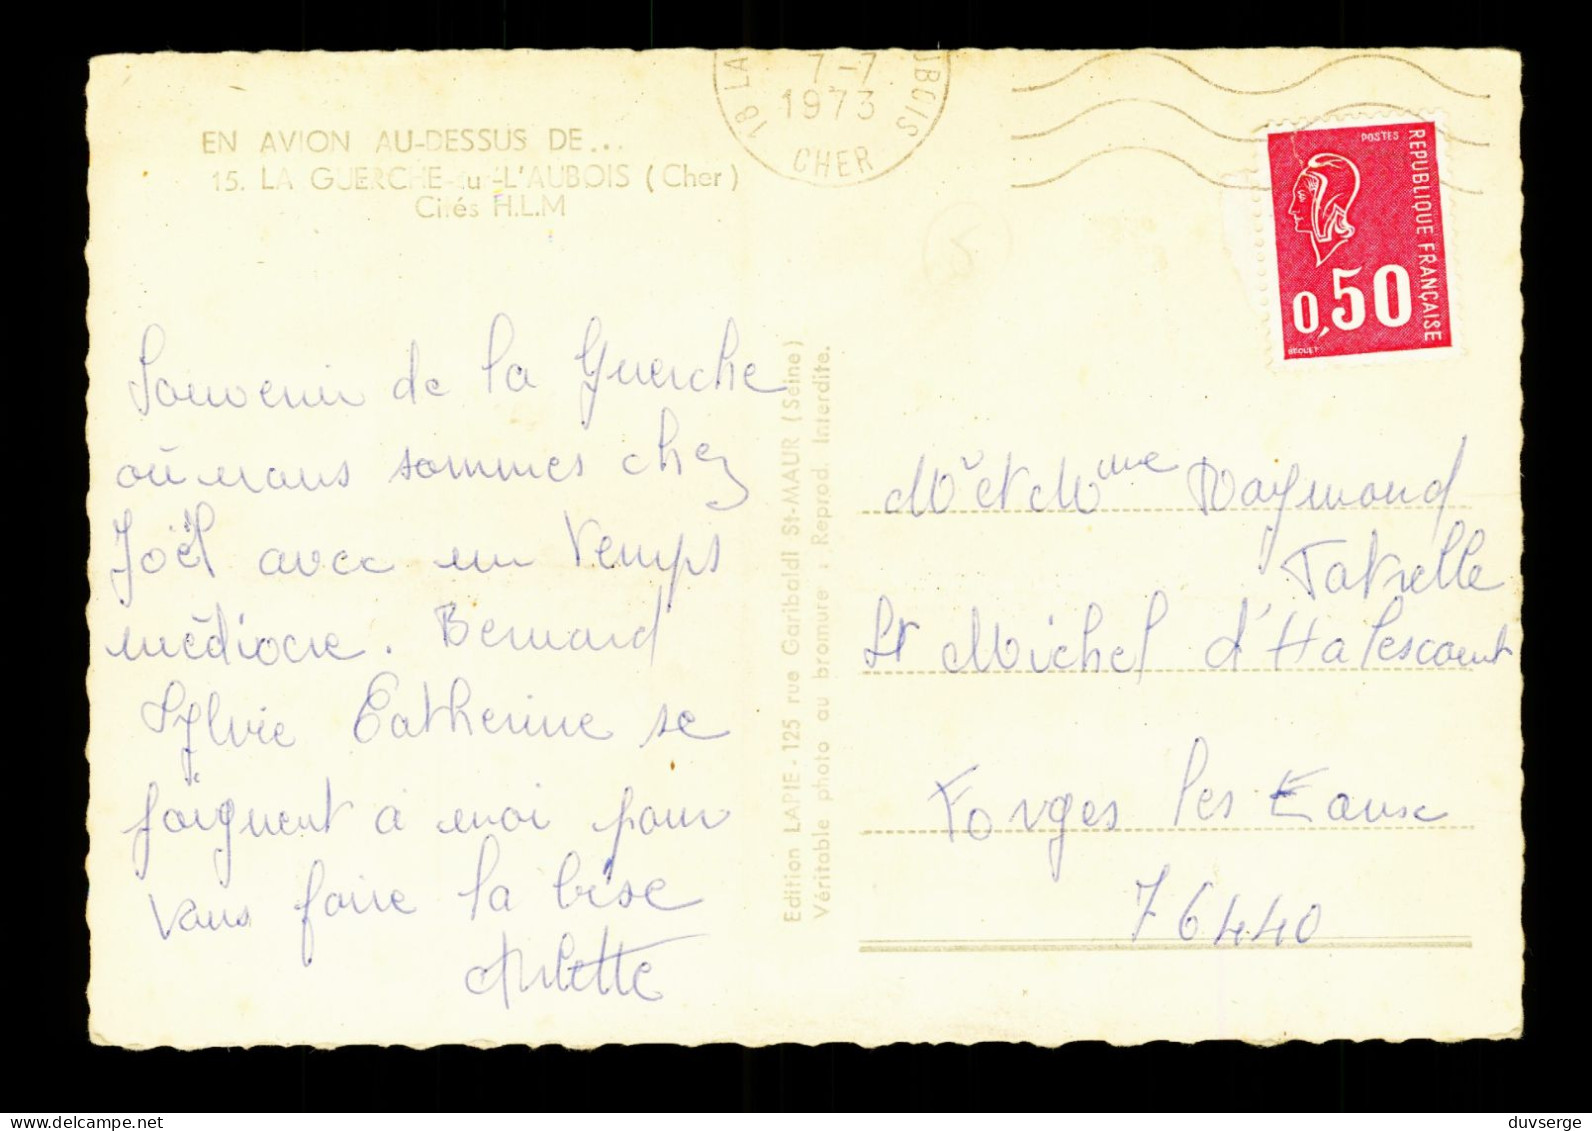 EN AVION AU-DESSUS DE...
15. LA GUERCHE-su-L'AUBOIS (Cher)
Cités H.L.M
18 LA UBOIS
7-7
1973
CHER
POSTES
REPUBLIQUE FRANÇAISE
0,50
BEQUET
Souvenir de la Guerche
où nous sommes chez
Joël avec un temps
médiocre. Bernard
Sylvie Catherine se
joignent à moi pour
vous faire la bise
Arlette
Edition LAPIE - 125 rue Garibaldi St-MAUR (Seine)
Véritable photo au bromure : Reprod. Interdite.
Mr et Mme Raymond
Tatrelle
St Michel d'Halescourt
Forges les Eaux
76440
duvserge